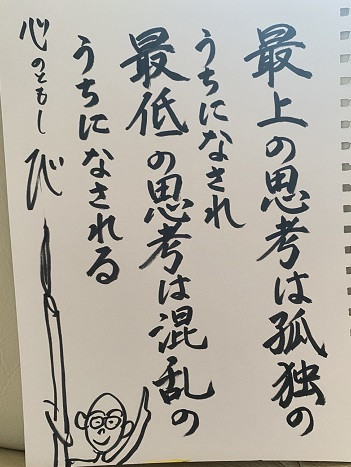 最上の思考は孤独の
うちになされ
最低の思考は混乱の
うちになされる
心のともし
び